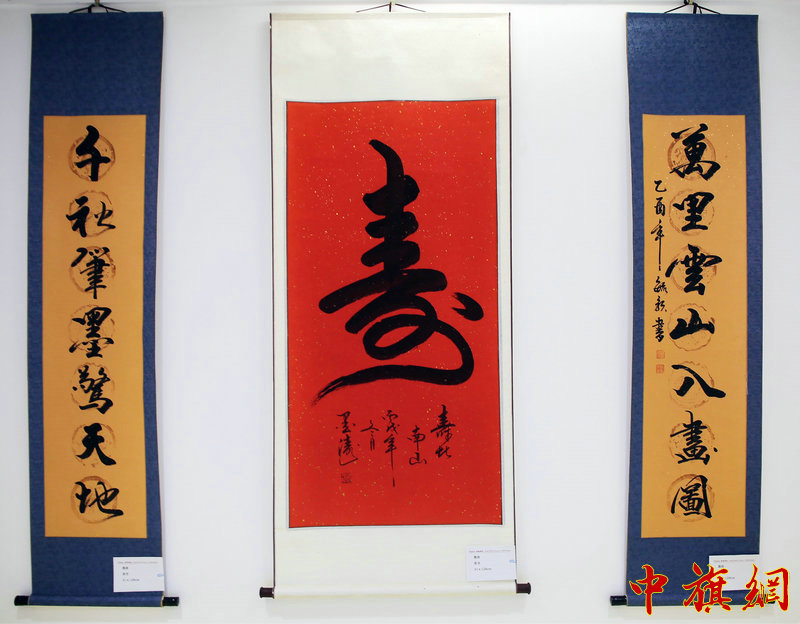 萬里雲山入畫圖
乙酉年
書
壽
壽比
南山
丙戌年
墨濤
千秋筆墨驚天地
中旗網